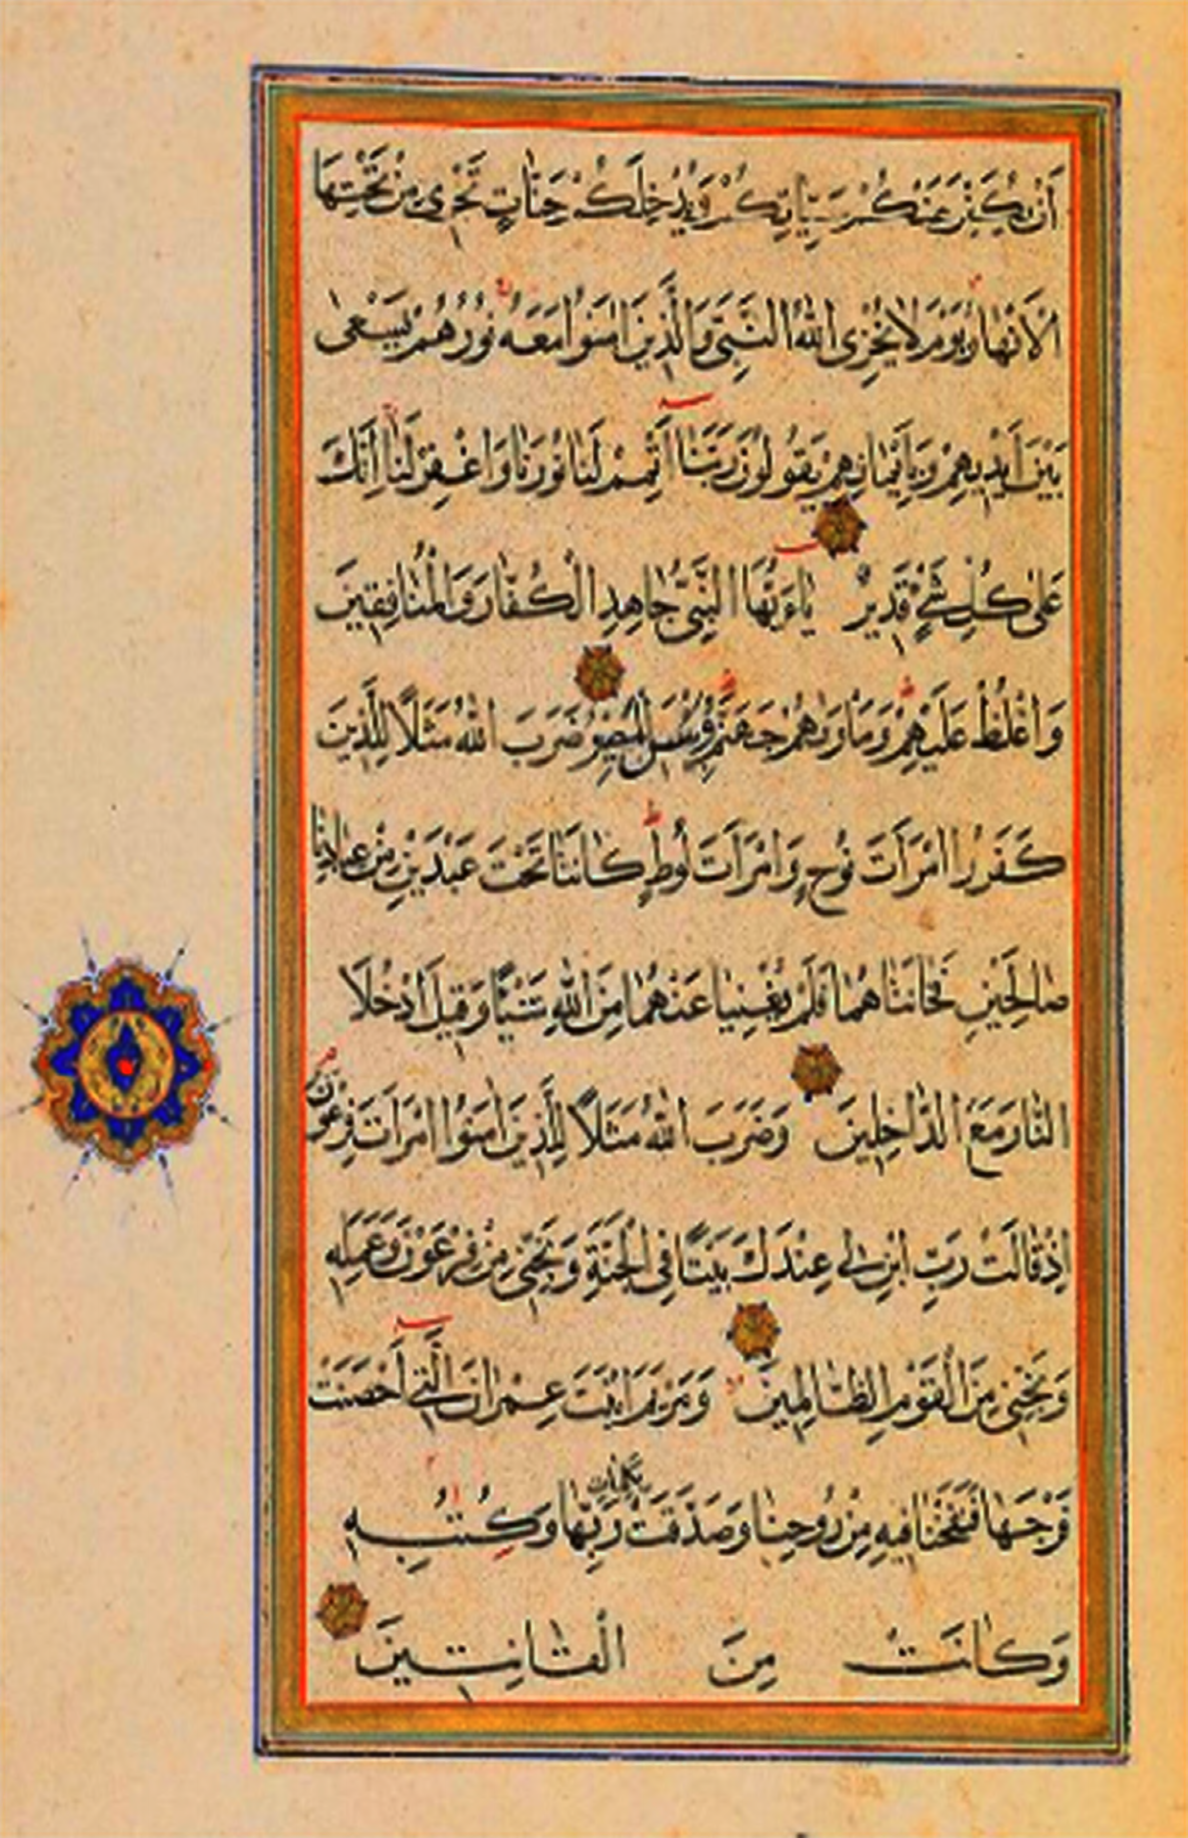 أَنْ يُكَفِّرَ عَنْكُمْ سَيِّئَاتِكُمْ وَيُدْخِلَكُمْ جَنَّاتٍ تَجْرِي مِنْ تَحْتِهَا
الْأَنْهَارُ يَوْمَ لَا يُخْزِي اللهُ النَّبِيَّ وَالَّذِينَ اٰمَنُوا مَعَهُ نُورُهُمْ يَسْعَى
بَيْنَ أَيْدِيهِمْ وَبِأَيْمَانِهِمْ يَقُولُونَ رَبَّنَا أَتْمِمْ لَنَا نُورَنَا وَاغْفِرْ لَنَا إِنَّكَ
عَلَى كُلِّ شَيْءٍ قَدِيرٌ يَاءَيُّهَا النَّبِيُّ جَاهِدِ الْكُفَّارَ وَالْمُنَافِقِينَ
وَاغْلُظْ عَلَيْهِمْ وَمَأْوٰىهُمْ جَهَنَّمُ وَبِئْسَ الْمَصِيرُ ضَرَبَ اللهُ مَثَلًا لِلَّذِينَ
كَفَرُوا امْرَأَتَ نُوحٍ وَامْرَأَتَ لُوطٍ كَانَتَا تَحْتَ عَبْدَيْنِ مِنْ عِبَادِنَا
صَالِحَيْنِ فَخَانَتَاهُمَا فَلَمْ يُغْنِيَا عَنْهُمَا مِنَ اللهِ شَيْئًا وَقِيلَ ادْخُلَا
النَّارَ مَعَ الدَّاخِلِينَ وَضَرَبَ اللهُ مَثَلًا لِلَّذِينَ اٰمَنُوا امْرَأَتَ فِرْعَوْنَ
إِذْ قَالَتْ رَبِّ ابْنِ لِي عِنْدَكَ بَيْتًا فِي الْجَنَّةِ وَنَجِّنِي مِنْ فِرْعَوْنَ وَعَمَلِهِ
وَنَجِّنِي مِنَ الْقَوْمِ الظَّالِمِينَ وَمَرْيَمَ ابْنَتَ عِمْرَانَ الَّتِي أَحْصَنَتْ
فَرْجَهَا فَنَفَخْنَا فِيهِ مِنْ رُوحِنَا وَصَدَّقَتْ بِكَلِمَاتِ رَبِّهَا وَكُتُبِهِ
وَكَانَتْ مِنَ الْقَانِتِينَ